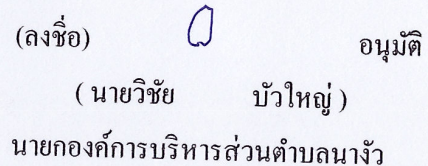 (ลงชื่อ) อนุมัติ
( นายวิชัย บัวใหญ่ )
นายกองค์การบริหารส่วนตำบลนางัว